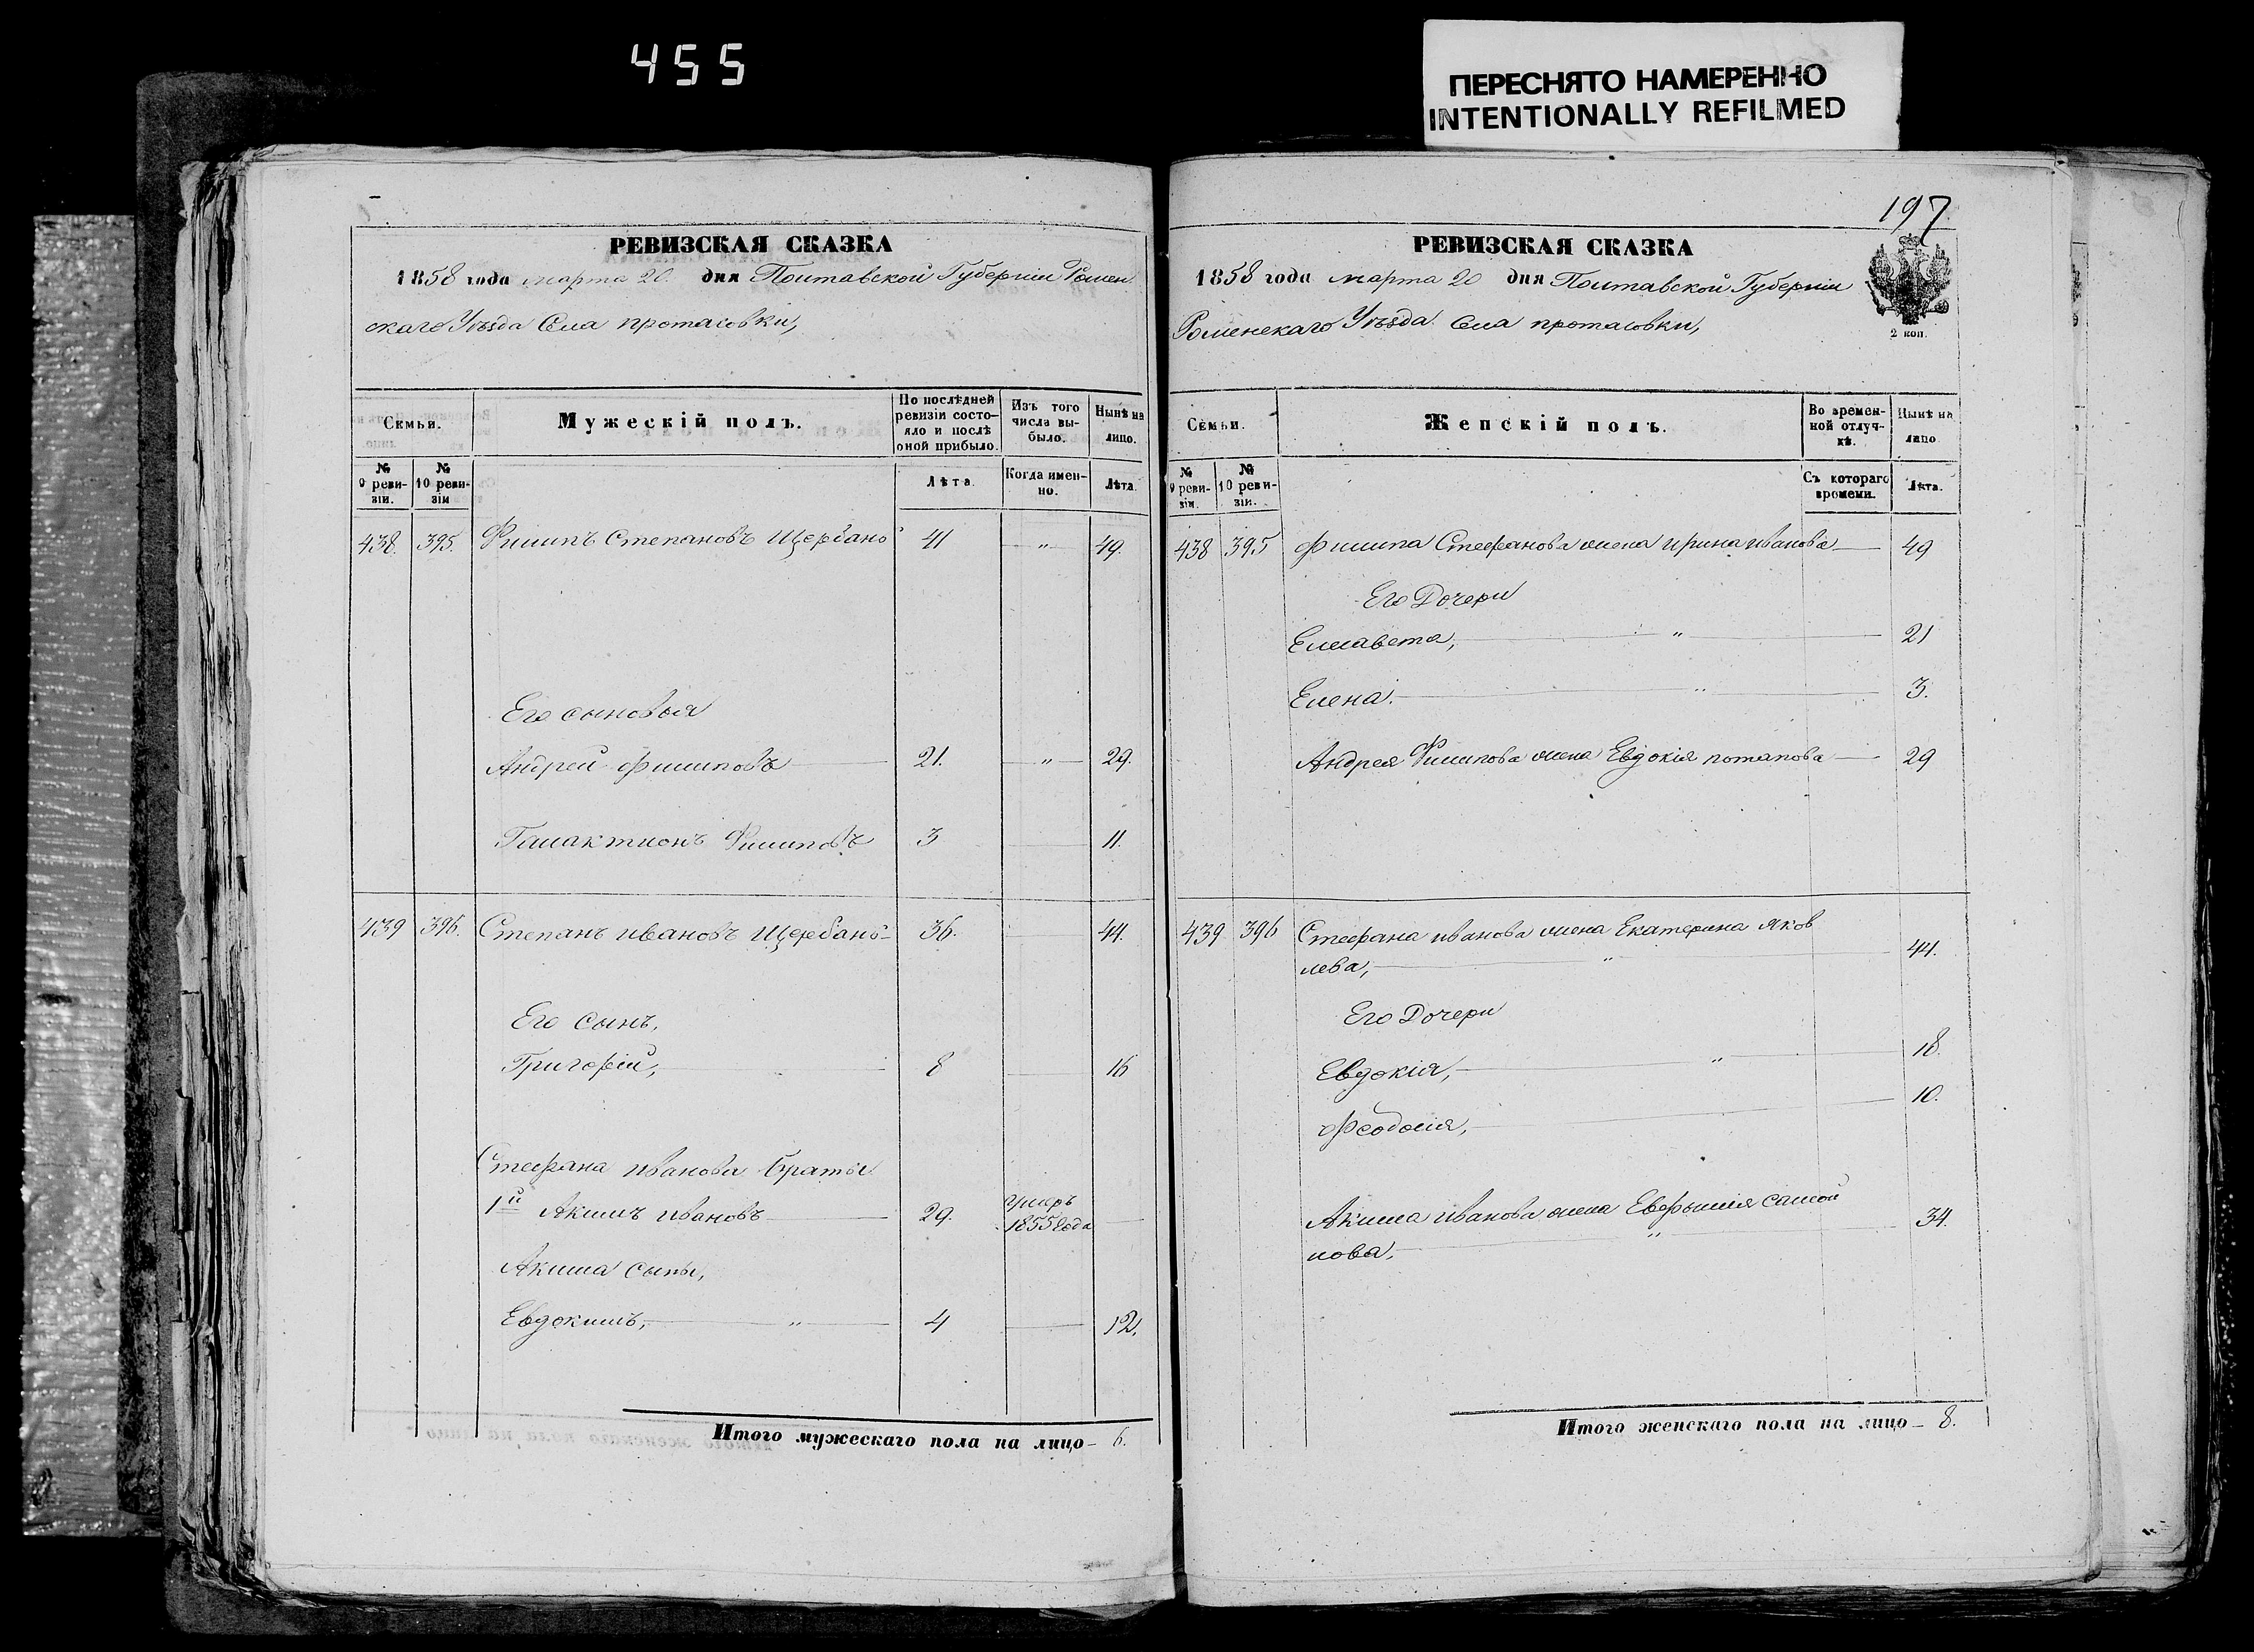 455
ПЕРЕСНЯТО НАМЕРЕННО
INTENTIONALLY REFILMED
РЕВИЗСКАЯ СКАЗКА
1858 года марта 20. дня Полтавской Губерніи Ромен
скаго Уѣзда Села протасовки,
Семьи.
Мужескій полъ.
По послѣдней ревизіи состояло и послѣ оной прибыло.
Изъ того числа выбыло.
Нынѣ на лицо.
№ 9 ревизіи.
№ 10 ревизіи
Лѣта.
Когда именно.
Лѣта.
438. 395. Филипъ Степановъ Щербань 41 " 49.
Его сыновья
Андрей Филиповъ 21. " 29.
Галактионъ Филиповъ 3 11.
439 396. Степанъ ивановъ Щербань 36. 44.
Его сынъ,
Григорій, 8 16
Стефана иванова братья
1й Акимъ ивановъ 29. умеръ 1855 года
Акима сынъ,
Евдокимъ, " 4 12.
Итого мужескаго пола на лицо 6.
197
РЕВИЗСКАЯ СКАЗКА
1858 года марта 20 дня Полтавской Губерніи
Роменскаго Уѣзда Села протасовки,
2 коп.
Семьи.
Женскій полъ.
Во временной отлучкѣ.
Нынѣ на лицо.
№ 9 ревизіи.
№ 10 ревизіи.
Съ котораго времени.
Лѣта.
438 395 Филипа Стефанова жена ирина иванова 49
Его Дочери
Елисавета, " 21
Елена. " 3.
Андрея Филипова жена Евдокія потапова 29
439 396 Стефана иванова жена Екатерина яков
лева, " 44.
Его Дочери
Евдокія, " 18.
Феодосія, 10.
Акима иванова жена Евфимія самой
лова, " 34.
Итого женскаго пола на лицо 8.